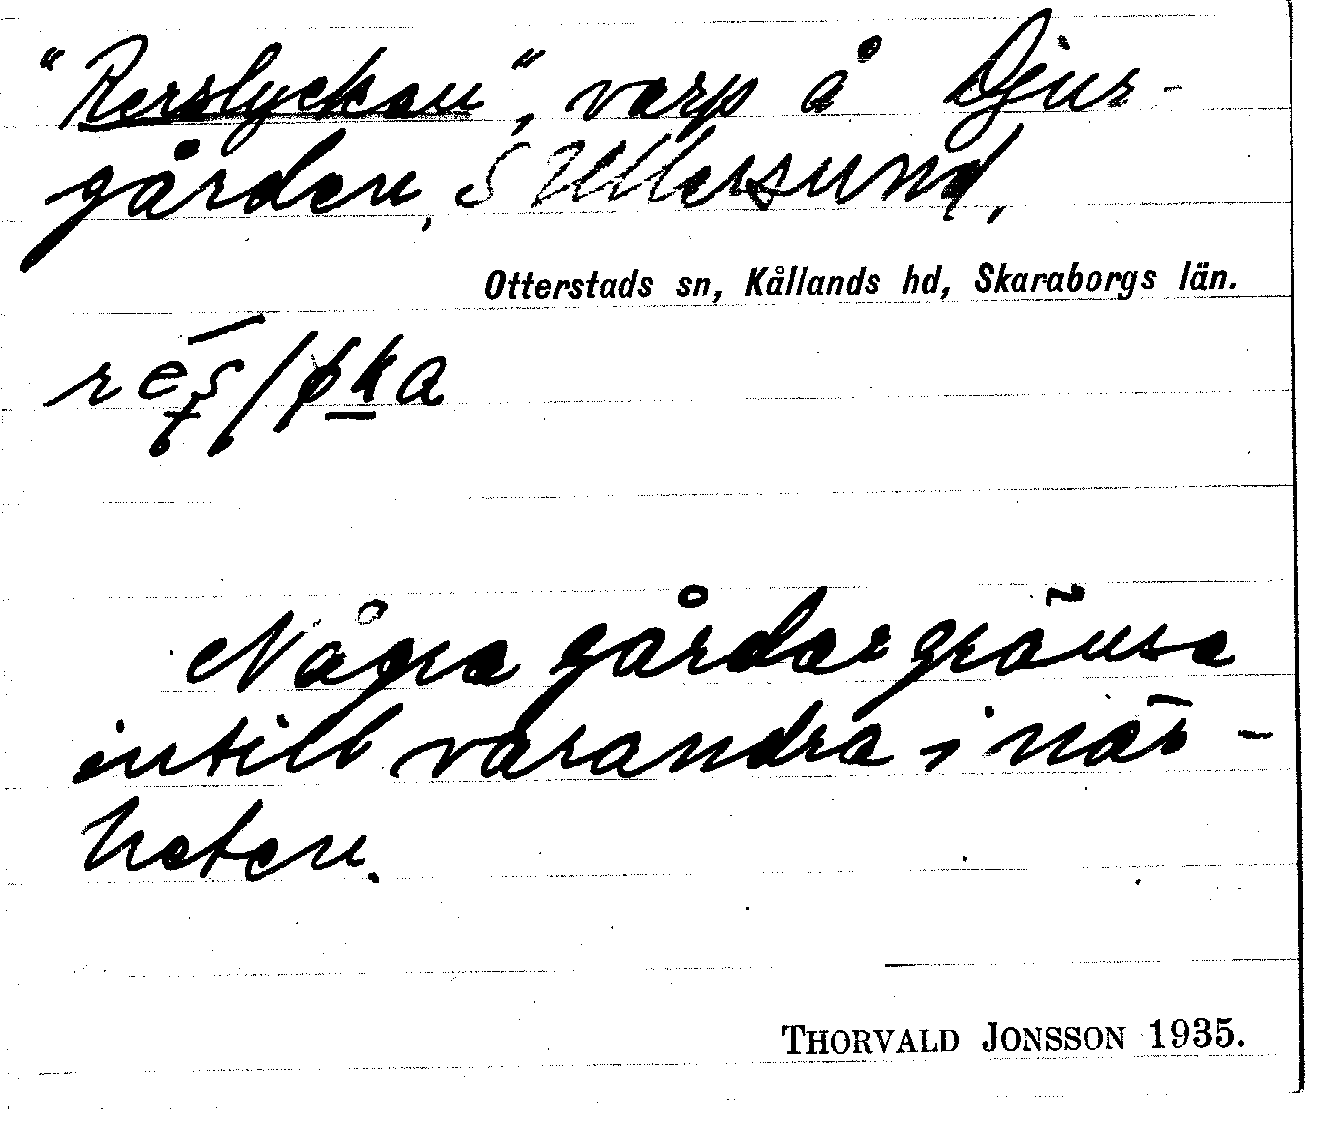 "Rerslyckan", varp å Djur-
gården, S Ullersund,
Otterstads sn, Kållands hd, Skaraborgs län.
Några gårdar gränsa
intill varandra i när-
heten.
THORVALD JONSSON 1935.